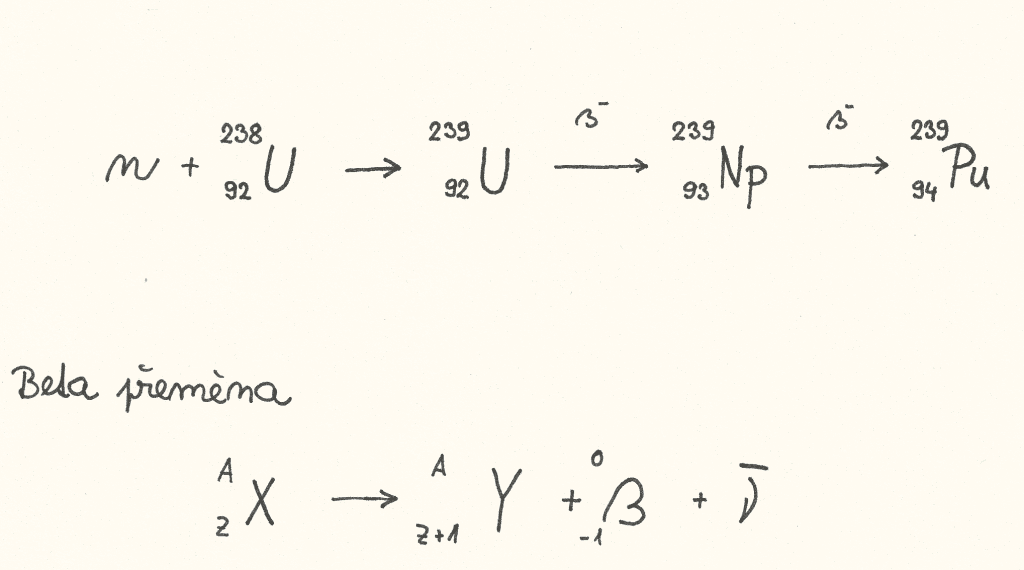 n + ²³⁸₉₂U → ²³⁹₉₂U —β⁻→ ²³⁹₉₃Np —β⁻→ ²³⁹₉₄Pu
Beta přeměna
ᴬ_Z X → ᴬ_Z+1 Y + ⁰₋₁β + ν̄